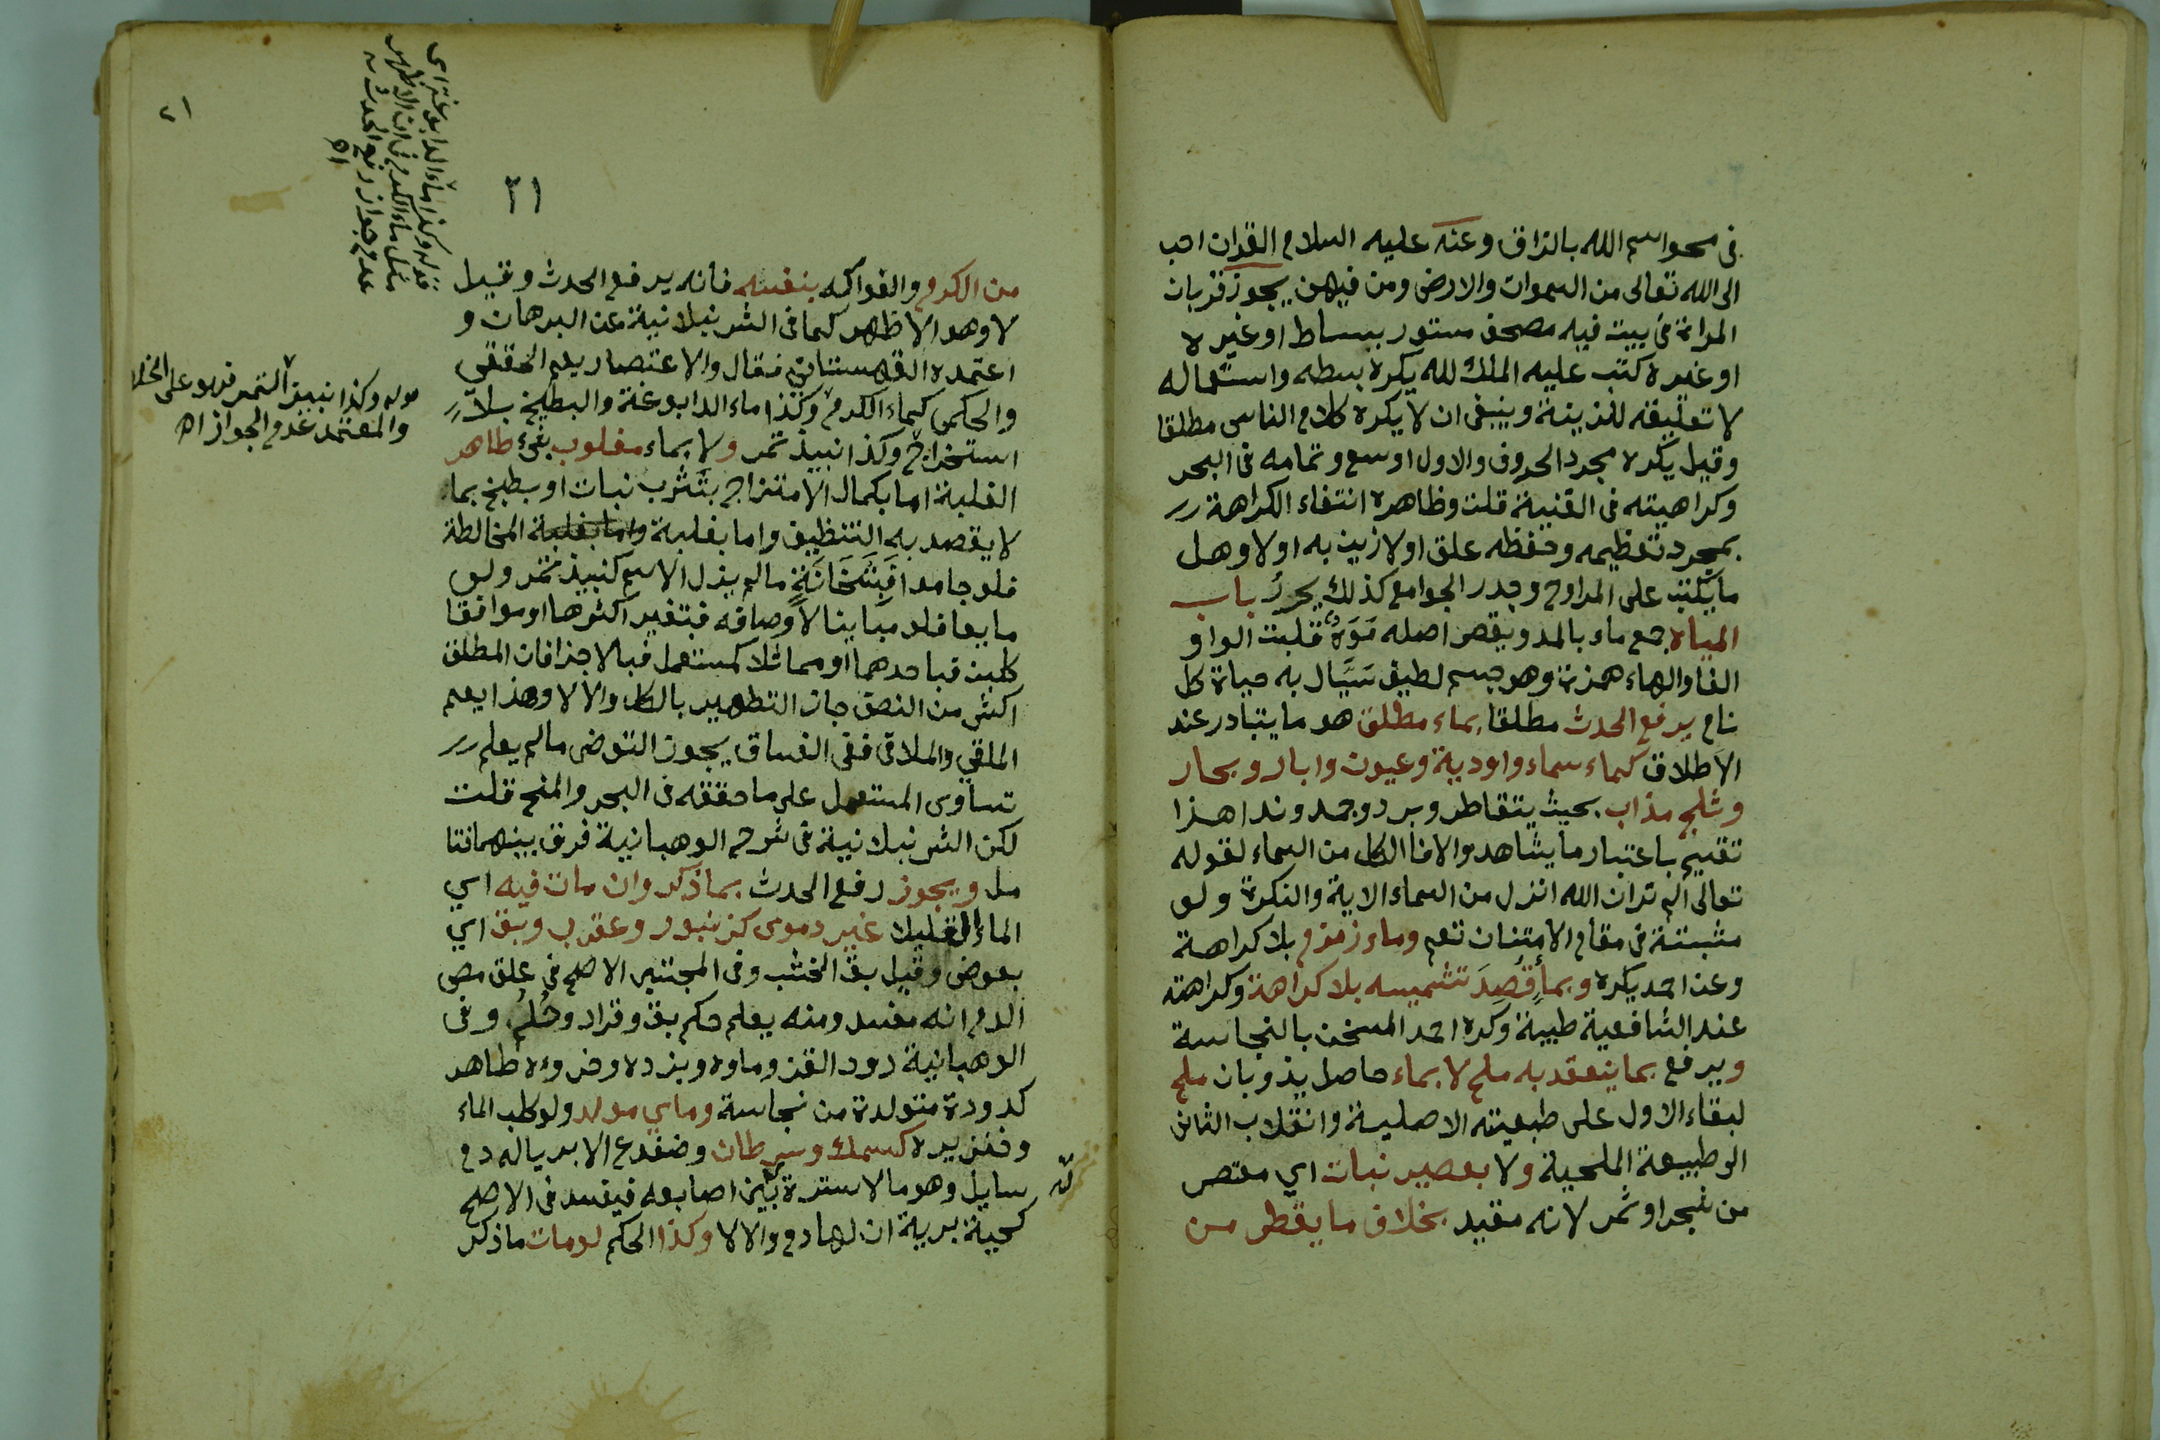 فى محو اسم الله بالبزاق وعنه عليه السلام القران احب
الى الله تعالى من السموات والارض ومن فيهن يجوز قربان
المراة فى بيت فيه مصحف مستور ببساط او غيره لا
او غيره كتب عليه الملك لله يكره بسطه واستعماله
لا تعليقه للزينة وينبغى ان لا يكره كلام الناس مطلقا
وقيل يكره مجرد الحروف والاول اوسع وتمامه فى البحر
وكراهيته فى القنية قلت وظاهره انتفاء الكراهة
بمجرد تعظيمه وحفظه علق اولا زين به اولا وهل
ما يكتب على المراوح وجدر الجوامع كذلك يحرر باب
المياه جمع ماء بالمد ويقصر اصله مَوَهٌ قلبت الواو
الفا والهاء همزة وهو جسم لطيف سَيَّال به حياة كل
نام يرفع الحدث مطلقا بماء مطلق هو ما يتبادر عند
الاطلاق كماء سماء واودية وعيون وابار وبحار
وثلج مذاب بحيث يتقاطر وبرد وجمد وندا هذا
تقسيم باعتبار ما يشاهد والا فا الكل من السماء لقوله
تعالى الم تر ان الله انزل من السماء الاية والنكرة ولو
مثبتة فى مقام الامتنان تعم وماء زمزم بلا كراهة
وعن احمد يكره وبماءٍ قُصِدَ تشميسه بلا كراهة وكراهته
عند الشافعية طبية وكره احمد المسخن بالنجاسة
ويرفع بما ينعقد به ملح لا بماء حاصل بذوبان ملح
لبقاء الاول على طبعيته الاصلية وانقلاب الثانى
الى طبيعة الملحية ولا بعصير نبات اي معتصر
من شجر او ثمر لانه مقيد بخلاف ما يقطر من
٢١
٢١
من الكرم والفواكه بنفسه فانه يرفع الحدث وقيل
لا وهو الاظهر كما فى الشرنبلانية عن البرهان و
اعتمده القهستانى فقال والاعتصار يعم الحقيقي
والحكمى كماء الكرم وكذا ماء الدابوغة والبطيخ بلا
استخراج وكذا نبيذ تمر ولا بماء مغلوب بشىء طاهر
الغلبة اما بكمال الامتزاج بتَشَرب نبات او بطبخ بما
لا يقصد به التنظيف واما بغلبة المخالطة
فلو جامدا فَبِثَخَانَةٍ ما لم يزل الاسم كنبيذ تمر ولو
مايعا فلو مباينا لاوصافه فبتغير اكثرها او موافقا
كلبن فباحدهما او مماثلا كمستعمل فبالاجزا فان المطلق
اكثر من النصف جاز التطهير بالكل والا لا وهذا يعم
الملقي والملاقى ففى الفساقى يجوز التوضى ما لم يعلم
تساوى المستعمل على ما حققه فى البحر والمنح قلت
لكن الشرنبلانية فى شرح الوهبانية فرق بينهما فتا
مل ويجوز رفع الحدث بما ذكر وان مات فيه اي
الماء القليل غير دموى كزنبور وعقرب وبق اي
بعوض وقيل بق الخشب وفى المجتبى الاصح فى علق مص
الدم انه مفسد ومنه يعلم حكم بق وقراد وحُلُم وفى
الوهبانية دود القز وماوه وبزره وخروءه طاهر
كدودة متولدة من نجاسة وماي مولد ولو كلب الماء
وخنزيره كسمك وسرطان وضفدع الا بريا له دم
سايل وهو ما لا سترة بين اصابعه فيفسد فى الاصح
كحية برية ان لها دم والا لا وكذا الحكم لو مات ما ذكر
قوله وكذا ماء الدابوغة اى
مثل ماء الكرم فى ان الاظهر
عدم جواز رفع الحدث به
اه
قوله وكذا نبيذ التمر فهو على الخلا
والمعتمد عدم الجواز اه